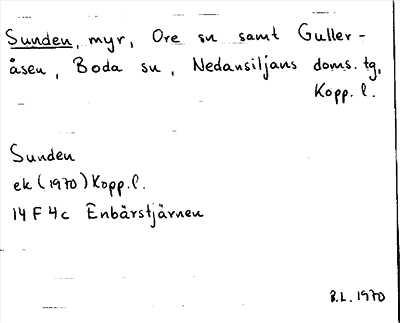 Sunden, myr, Ore sn samt Guller-
åsen, Boda sn, Nedansiljans doms. tg,
Kopp. l.
Sunden
ek (1970) Kopp. l.
14 F 4c Enbärstjärnen
B.L. 1970